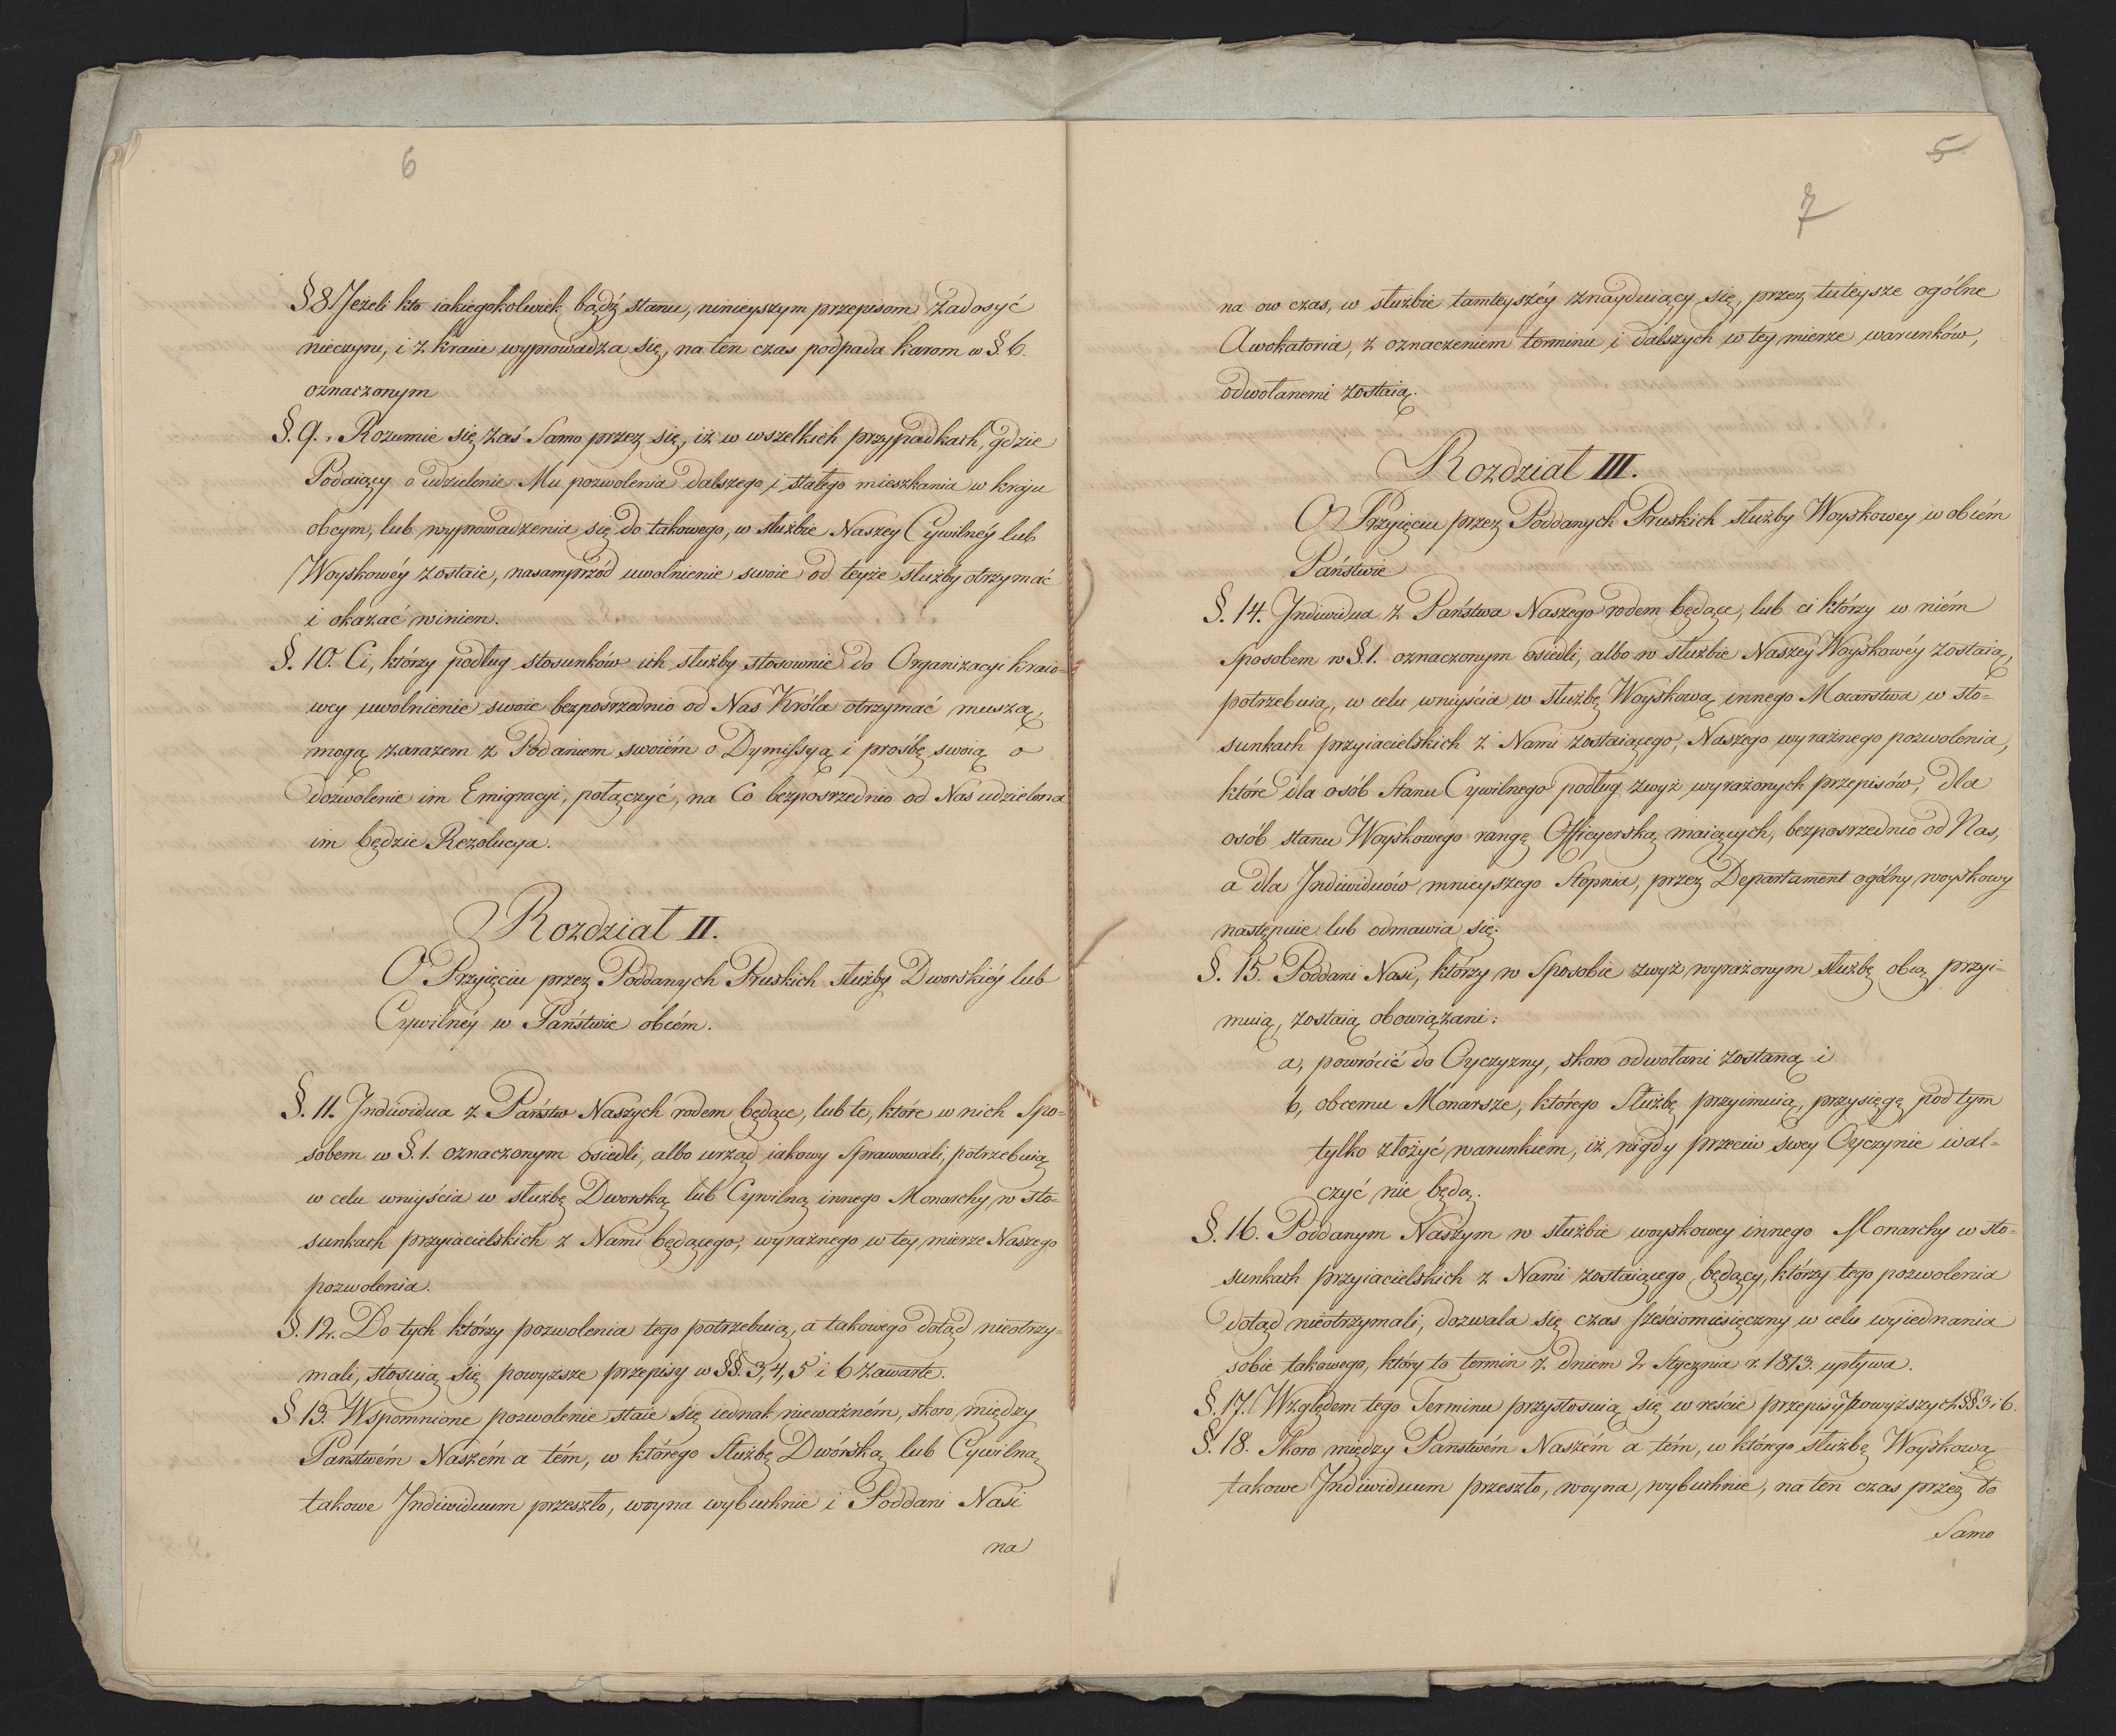 6
§ 8. Jeżeli kto iakiegokolwiek bądź stanu, ninieyszym przepisom zadosyć
nieczyni, i z kraiu wyprowadza się, na ten czas podpada karom w §. 6.
oznaczonym
§. 9. Rozumie się zaś samo przez się, iż w wszelkich przypadkach, gdzie
Podaiący o udzielenie Mu pozwolenia dalszego i stałego mieszkania w kraju
obcym, lub wyprowadzenia się do takowego, w służbie Naszey Cywilnéy lub
Woyskowéy zostaie, nasamprzód uwolnienie swoie od teyże służby otrzymać
i okazać winien.
§. 10. Ci, którzy podług stosunków ich służby stosownie do Organizacyi kraio-
wey uwolnienie swoie bezpośrzednio od Nas Króla otrzymać muszą,
mogą zarazem z Podaniem swoiém o Dymissyą i prośbę swoią o
dozwolenie im Emigracyi, połączyć, na Co bezpośrzednio od Nas udzielona
im będzie Rezolucya.
Rozdział II.
O Przyięciu przez Poddanych Pruskich służby Dworskiéy lub
Cywilnéy w Państwie obcém.
§. 11. Indiwidua z Państw Naszych rodem będące, lub te, które w nich Spo-
sobem w §. 1. oznaczonym osiedli, albo urząd iakowy Sprawowali, potrzebuią
w celu wniyścia w służbę Dworską lub Cywilną innego Monarchy w sto-
sunkach przyiacielskich z Nami będącego, wyraźnego w tey mierze Naszego
pozwolenia.
§. 12. Do tych którzy pozwolenia tego potrzebuią, a takowego dotąd nieotrzy-
mali, stosuią się powyższe przepisy w §§. 3, 4, 5 i 6 zawarte.
§. 13. Wspomnione pozwolenie staie się iednak nieważném, skoro między
Państwém Naszém a tém, w którego Służbę Dwórską lub Cywilną
takowe Indiwiduum przeszło, woyna wybuchnie i Poddani Nasi
na
5
7
na ow czas, w służbie tamteyszéy znayduiący się, przez tuteysze ogólne
Awokatoria, z oznaczeniem terminu i dalszych w tey mierze warunków,
odwołanemi zostaią.
Rozdział III.
O Przyięciu przez Poddanych Pruskich służby Woyskowey w obcém
Państwie
§. 14. Indiwidua z Państwa Naszego rodem będące, lub ci którzy w niém
Sposobem w §. 1. oznaczonym osiedli, albo w służbie Naszéy Woyskowéy zostaią,
potrzebuią, w celu wniyścia w służbę Woyskową innego Mocarstwa w sto-
sunkach przyiacielskich z Nami zostaiącego, Naszego wyraźnego pozwolenia,
które dla osób Stanu Cywilnego podług zwyż wyrażonych przepisów, dla
osób stanu Woyskowego rangę Officyerską maiących, bezpośrzednio od Nas,
a dla Indiwiduów mnieyszego Stopnia, przez Departament ogólny woyskowy
następuie lub odmawia się.
§. 15. Poddani Nasi, którzy w Sposobie zwyż wyrażonym służbę obcą przyi-
muią, zostaią obowiązani:
a, powrócić do Oyczyzny, skoro odwołani zostaną i
b, obcemu Monarsze, którego Służbę przyimuią, przysięgę pod tym
tylko złożyć warunkiem, iż nigdy przeciw swey Oyczynie wal-
czyć nie będą.
§. 16. Poddanym Naszym w służbie woyskowey innego Monarchy w sto-
sunkach przyiacielskich z Nami zostaiącego będący, którzy tego pozwolenia
dotąd nieotrzymali, dozwala się czas sześciomiesięczny w celu wyiednania
sobie takowego, który to termin z dniem 2 Stycznia r. 1813. upływa.
§. 17. Względem tego Terminu przystosuią się w reście przepisy powyższych §§ 3 i 6.
§. 18. Skoro między Panstwém Naszém a tém, w którego służbę Woyskową
takowe Indiwiduum przeszło, woyna wybuchnie, na ten czas przez to
Samo